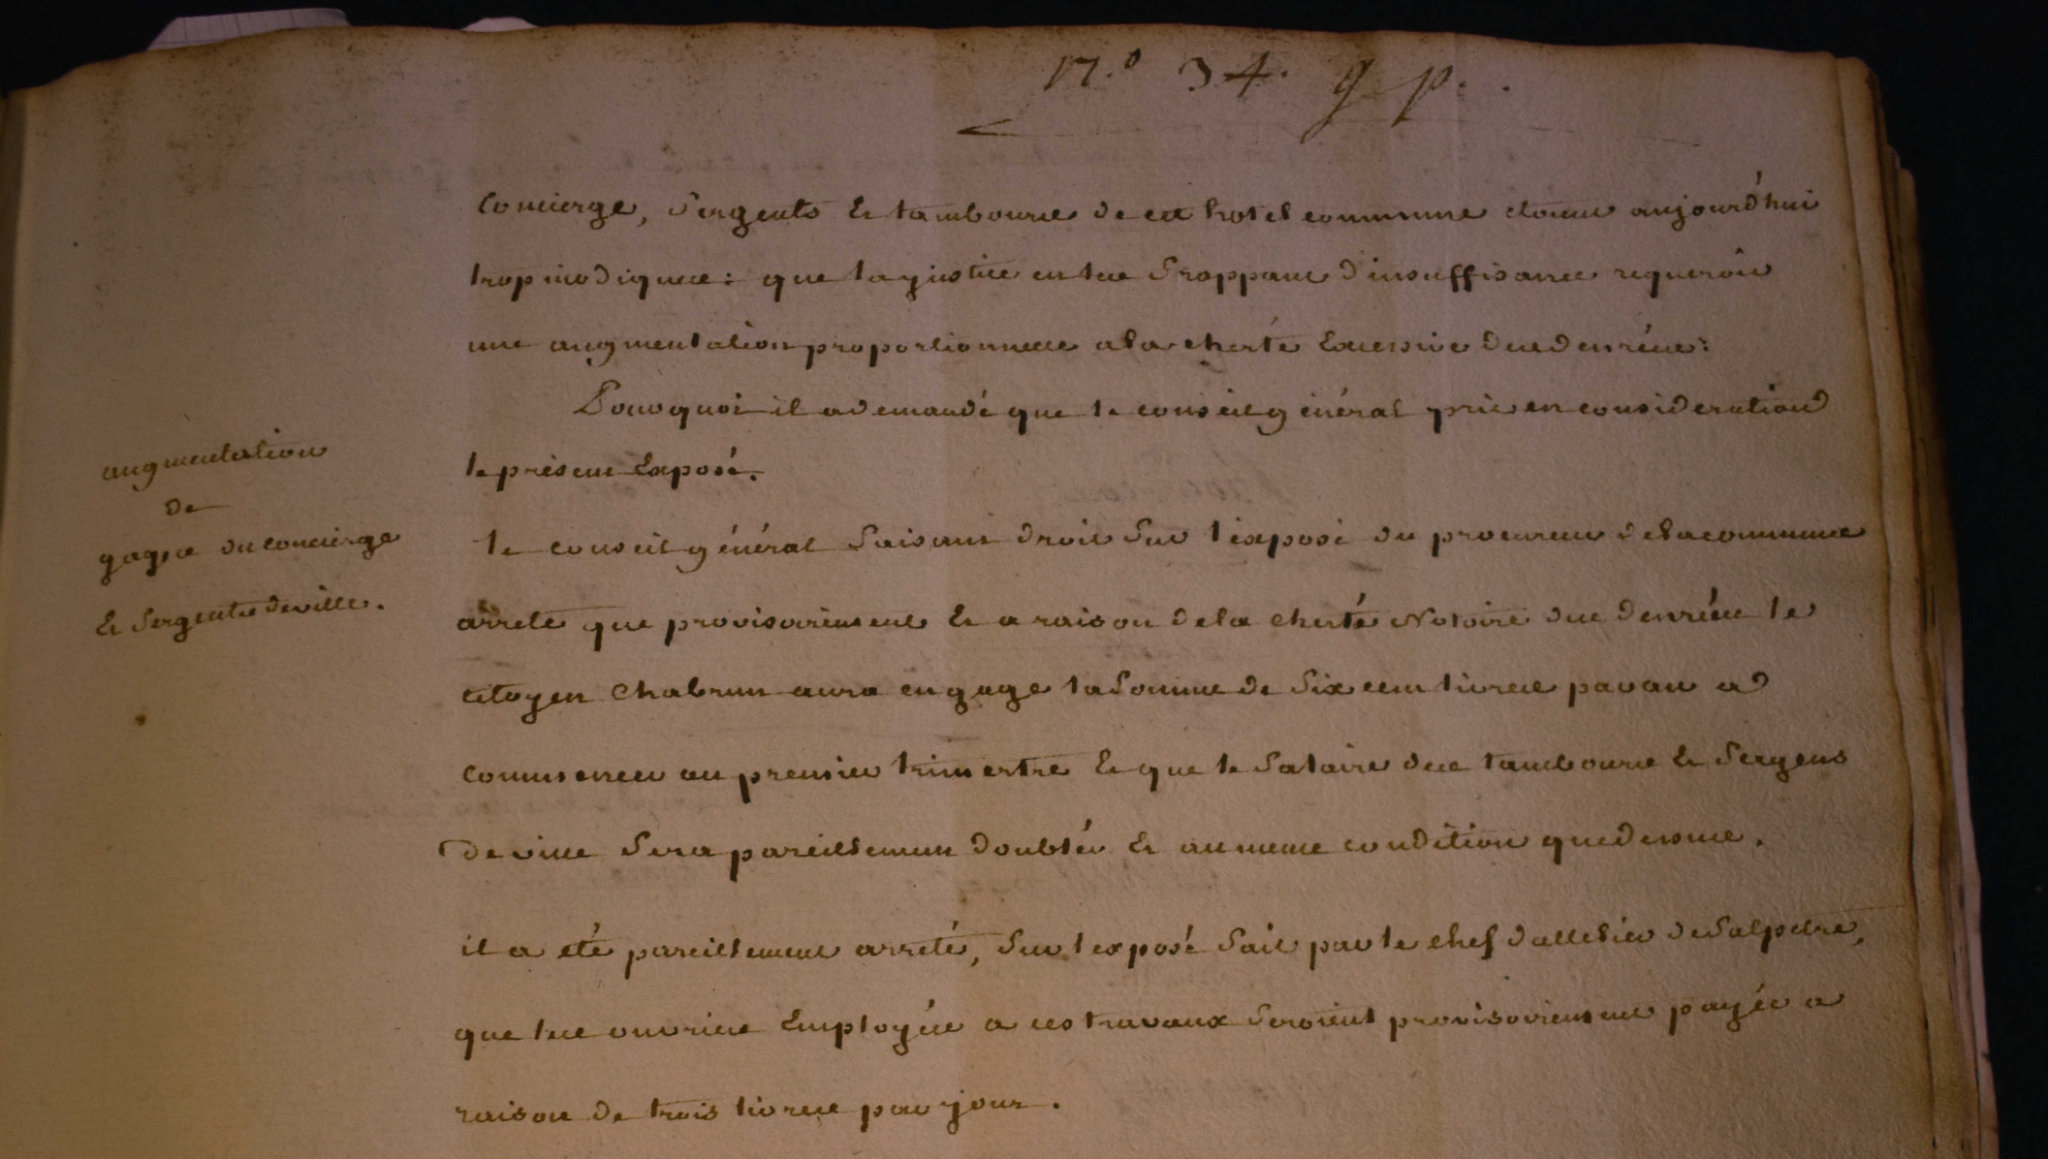 N.° 34. g p.
Concierge, Sergents et tambours de cet hotel commune etoient aujourd'hui
trop modiques: que la justice en les frappant d'insuffisance requeroit
une augmentation proportionnelle a la cherté Excessive des denrées:
Pourquoi il a demandé que le conseil général prit en consideration
le présent Exposé.
augmentation
de
gages du concierge
et Sergents de ville.
le conseil général faisant droit sur l'exposé du procureur de la commune
arreté que provisoirement et a raison de la cherté Notoire des denrées le
citoyen Chabrun aura en gage la somme de six cent livres par an a
commencer au premier trimestre et que le salaire des tambours et Sergens
de ville sera pareillement doublé et au meme condition que dessus.
il a eté pareillement arreté, sur l'exposé fait par le chef d'attelier de Salpetre,
que les ouvriers Employés a ces travaux seroient provisoirement payés a
raison de trois livres par jour.